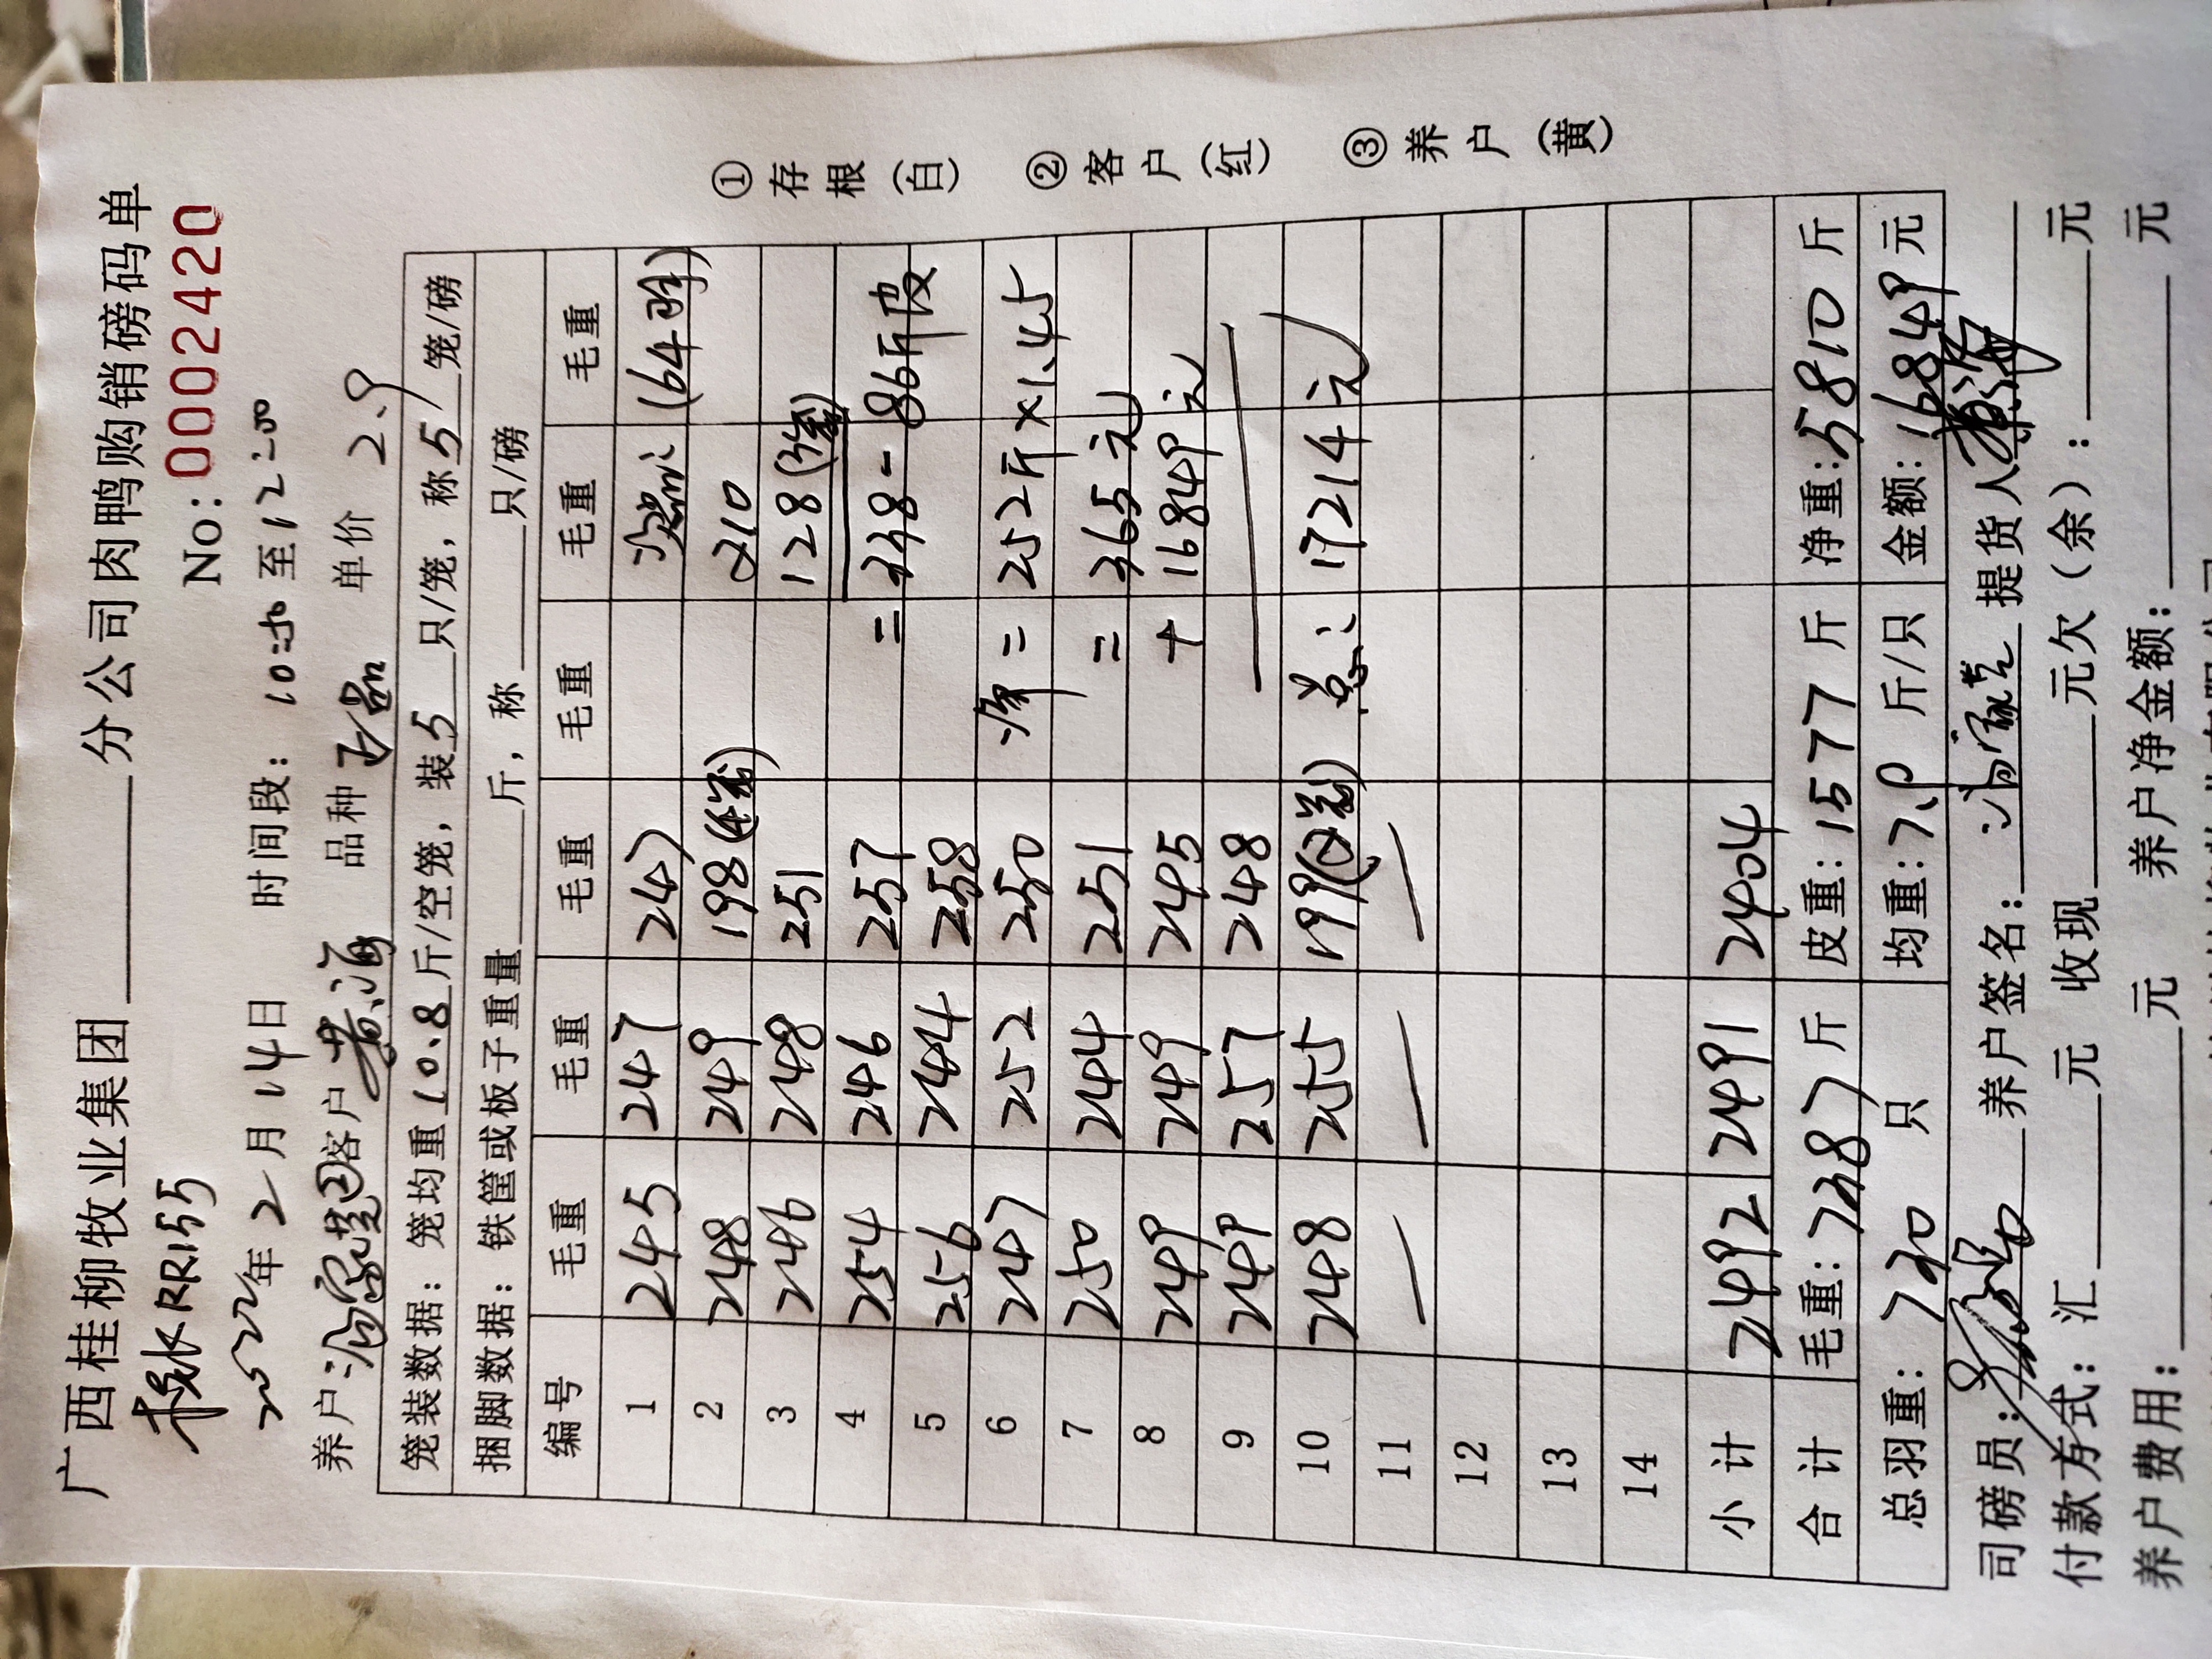 广西桂柳牧业集团______分公司肉鸭购销磅码单
桂KRR155 No:0002420
2022年2月14日 时间段:10:50至12:00
养户:冯家芝② 客户 黄海 品种 正品 单价 2.9
笼装数据:笼均重10.8斤/空笼,装5只/笼,称5笼/磅
捆脚数据:铁筐或板子重量____斤,称____只/磅
编号 毛重 毛重 毛重 毛重 毛重 毛重
1 245 247 247 (64
2 248 249 198(4笼) 210
3 246 248 251 128(3笼)
4 254 246 257 =338-86斤皮
5 256 244 258
6 247 252 250 净=252斤×1.45
7 250 244 251 =365元
8 249 249 245 +16849元
9 249 257 248
10 248 255 199(4笼) 总:17214元
11 — — —
12
13
14
小计 2492 2491 2404
合计 毛重:7387斤 皮重:1577斤 净重:5810斤
总羽重:730只 均重:7.9斤/只 金额:16849元
司磅员: 养户签名:冯家芝 提货人 黄海
付款方式:汇____元 收现____元欠(余):____元
养户费用:____元 养户净金额:____元
①存根(白) ②客户(红) ③养户(黄)